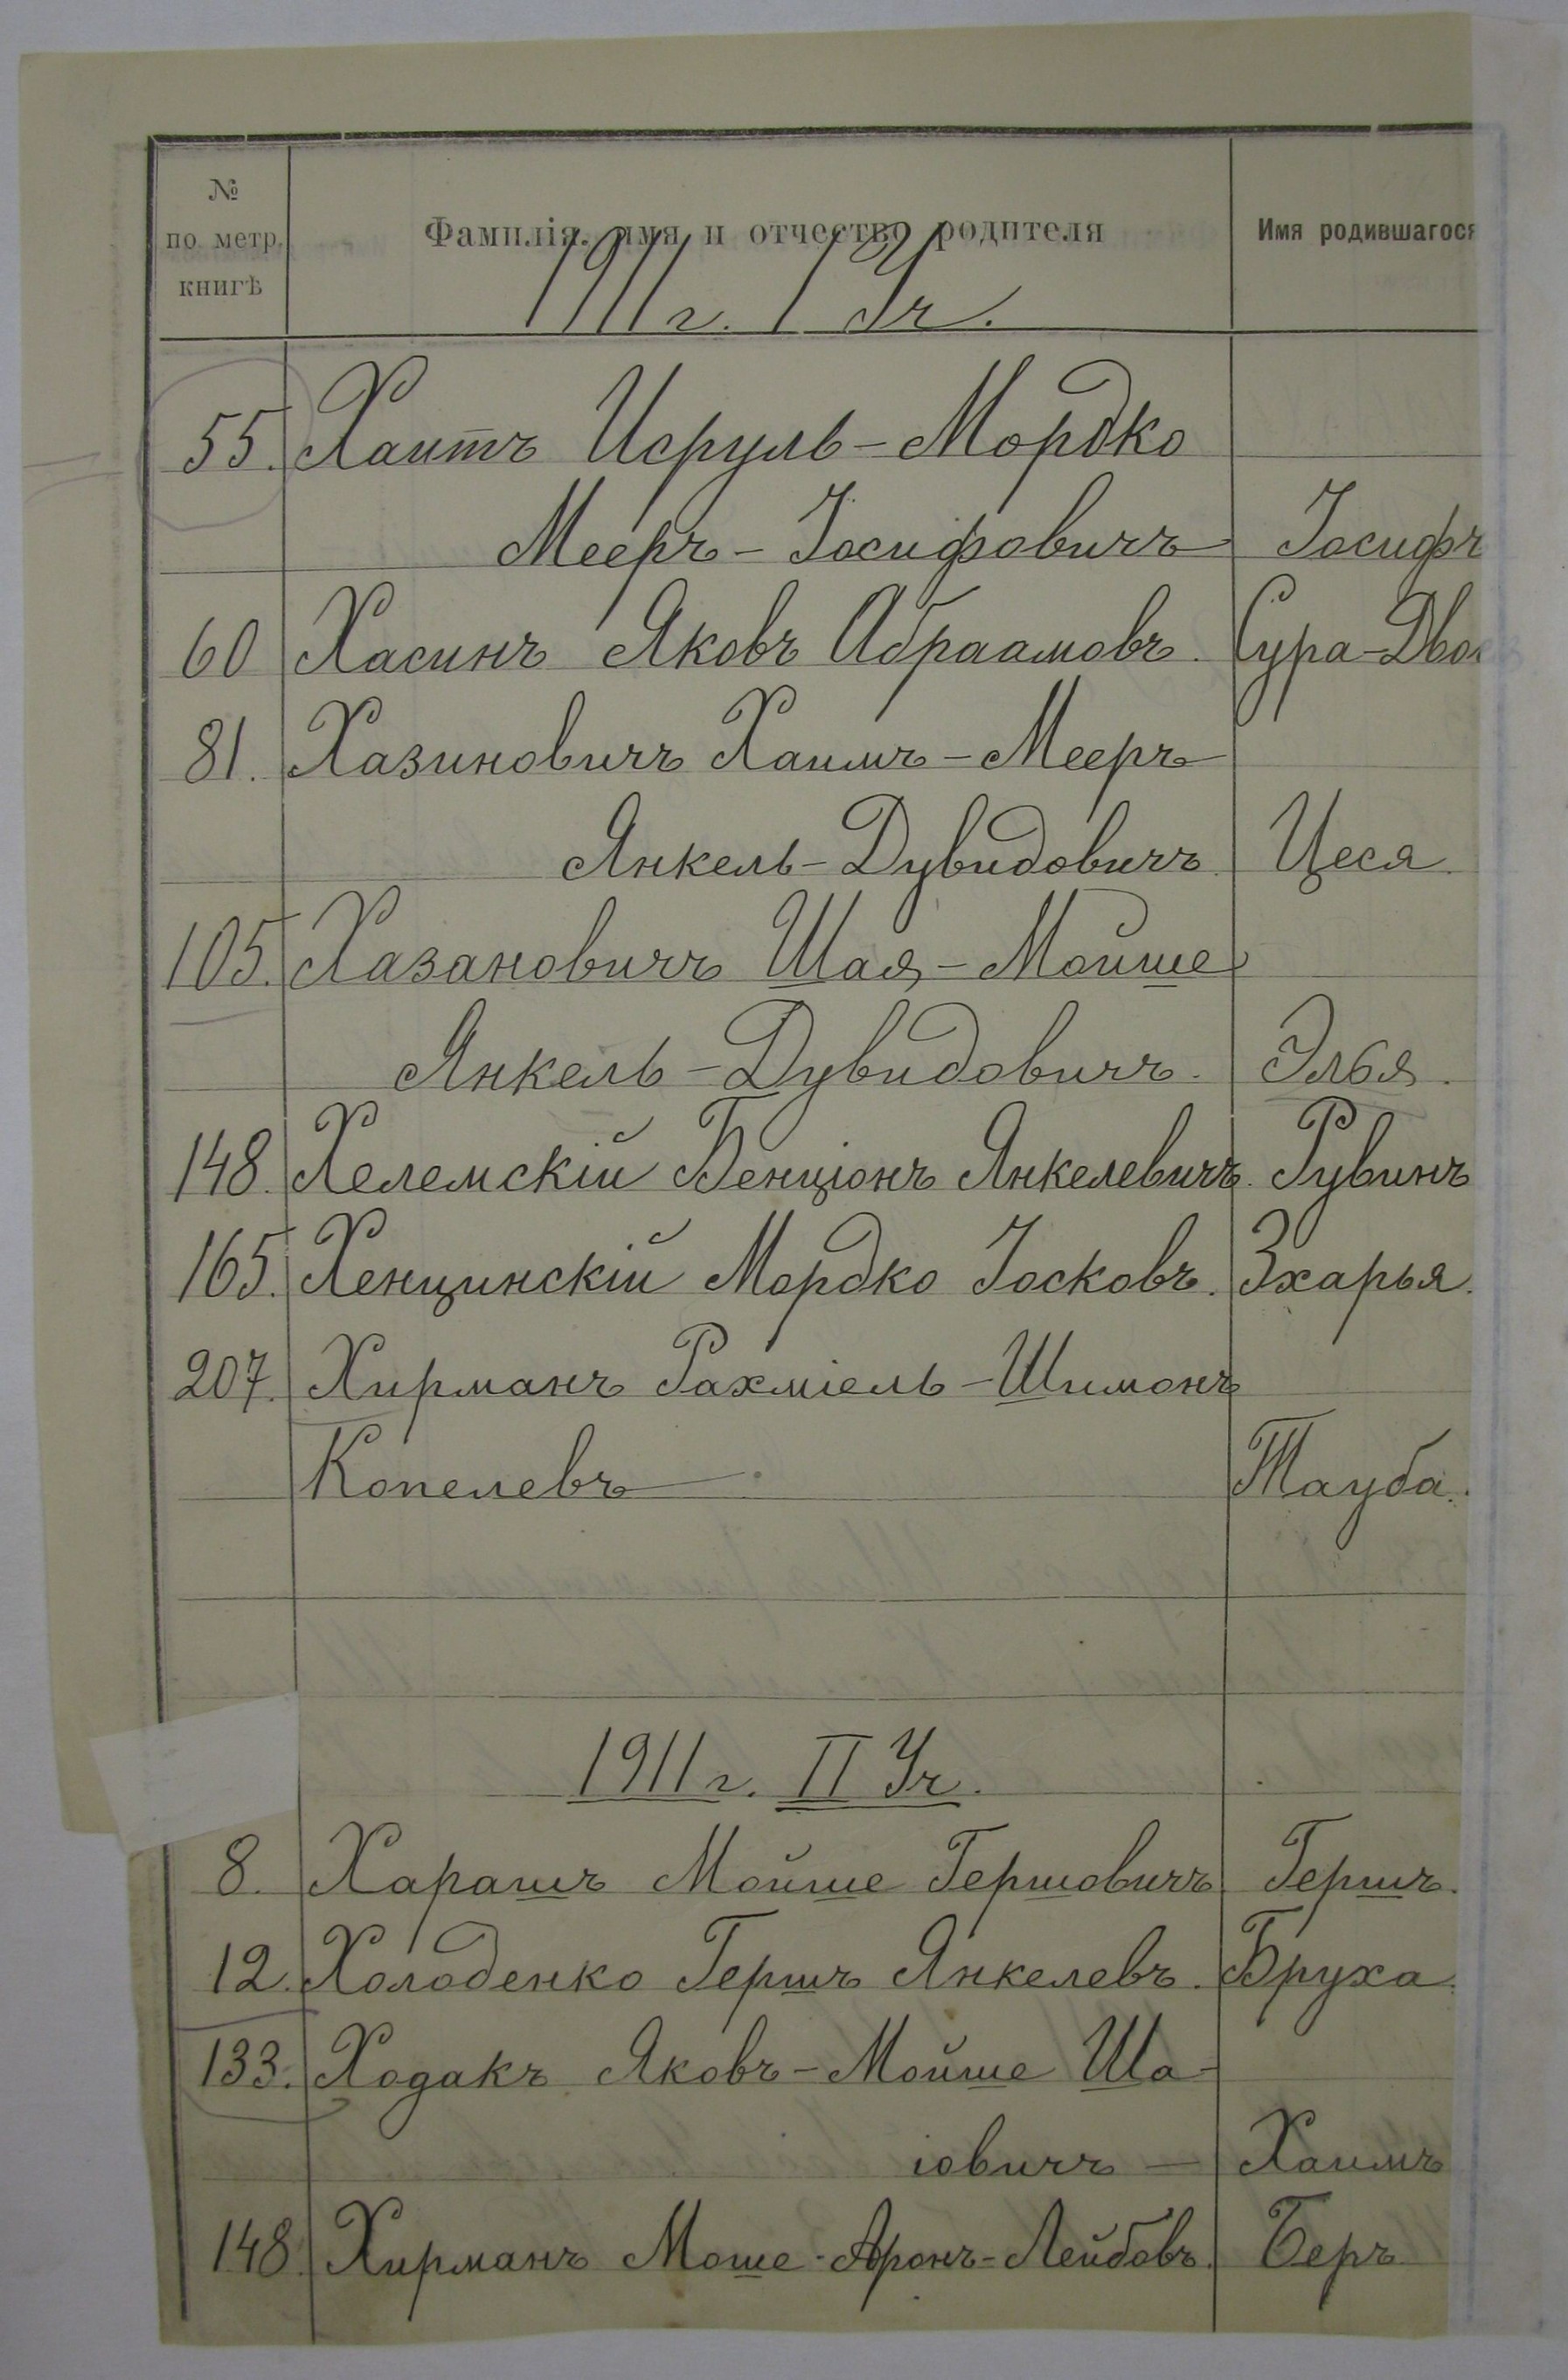 № по метр. книгѣ Фамилія, имя и отчество родителя Имя родившагося
1911 г. I Уч.
55. Хаитъ Исруль-Мордко
Мееръ-Іосифовичъ Іосифъ
60 Хасинъ Яковъ Абраамовъ. Сура-Дво
81. Хазиновичъ Хаимъ-Мееръ
Янкель-Дувидовичъ. Цеся.
105. Хазановичъ Шая-Мойше
Янкель-Дувидовичъ. Элья.
148. Хелемскій Бенціонъ Янкелевичъ. Рувинъ
165. Хенцинскій Мордко Іосковъ. Зхарья.
207. Хирманъ Рахміель-Шимонъ
Копелевъ. Тауба.
1911 г. II Уч.
8. Харашъ Мойше Гершовичъ Гершъ.
12. Холоденко Гершъ Янкелевъ. Бруха.
133. Ходакъ Яковъ-Мойше Ша-
іовичъ — Хаимъ
148. Хирманъ Моше-Аронъ-Лейбовъ. Беръ